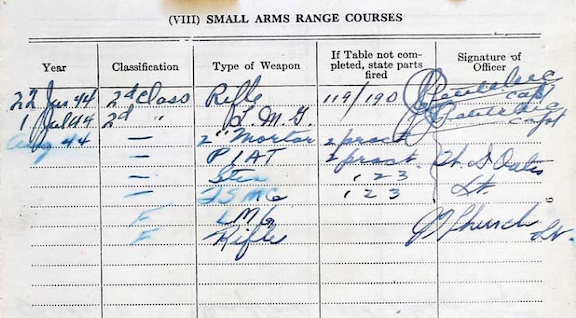 (VIII) SMALL ARMS RANGE COURSES
Year Classification Type of Weapon If Table not completed, state parts fired Signature of Officer
22 Jun 44 2d Class Rifle 119/190 Capt
1 Jul 44 2d " L.M.G. Capt
Aug 44 — 2" Mortar 2 pract
— PIAT 2 pract
— Sten 1 2 3 Lt.
— 1 2 3
F LMG Church
F Rifle Lt.
6